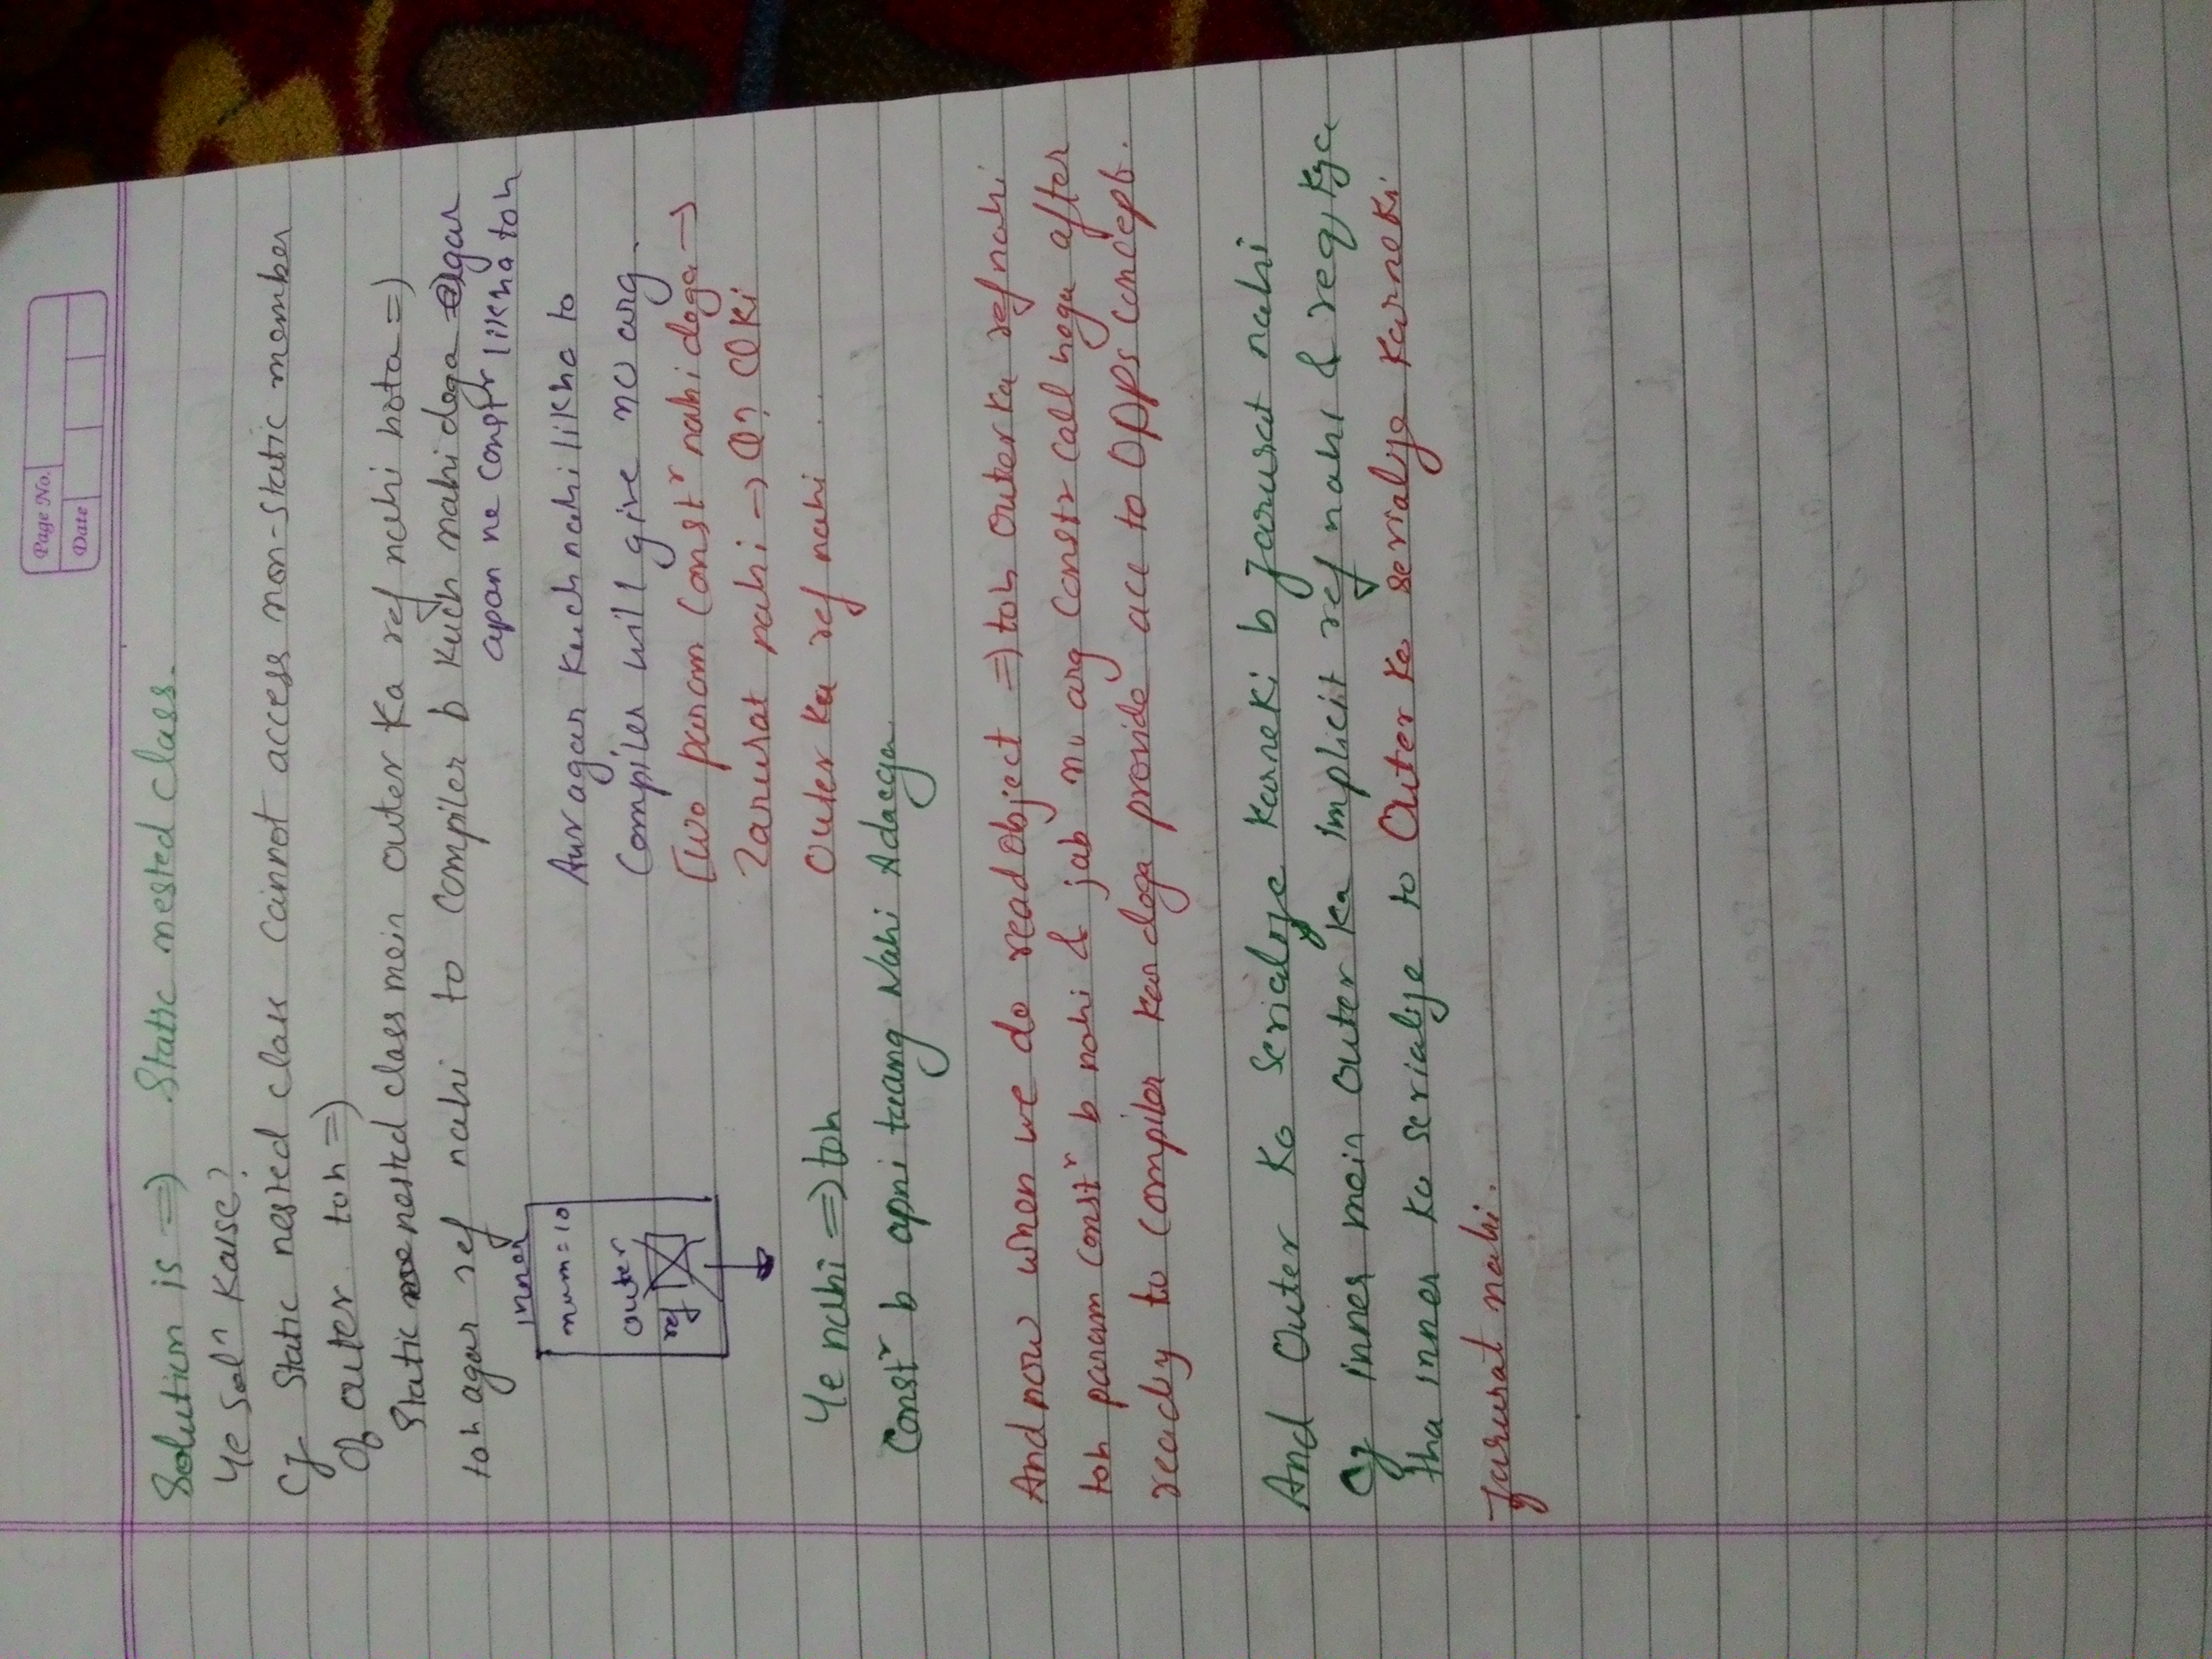 Page No.
Date
Solution is => Static nested class.
Ye solⁿ Kaise?
Cz Static nested class cannot access non-static member
Of outer toh =>
Static nested class mein outer Ka ref nahi hota =>
toh agar ref nahi to Compiler b Kuch nahi dega agar
apan ne constʳ likha toh
inner
num=10
outer
ref
Aur agar Kuch nahi likha to
Compiler will give no arg.
Two param Constʳ nahi dega →
Zarurat nahi → Q? CQ Ki
Outer Ka ref nahi ..
Ye nahi => toh
Constʳ b apni taang Nahi Adaega
And now when we do readobject => toh outer Ka ref nahi
toh param constʳ b nahi & jab no arg Constr Call hoga after
ready to Compiler Kar dega provide acc to OOPs concept.
And Outer Ko Serialize Karneki b Jarurat nahi
Cz inner mein outer Ka implicit ref nahi & req Kya
tha inner Ko serialize to Outer Ko serialize Karneki
Jarurat nahi.